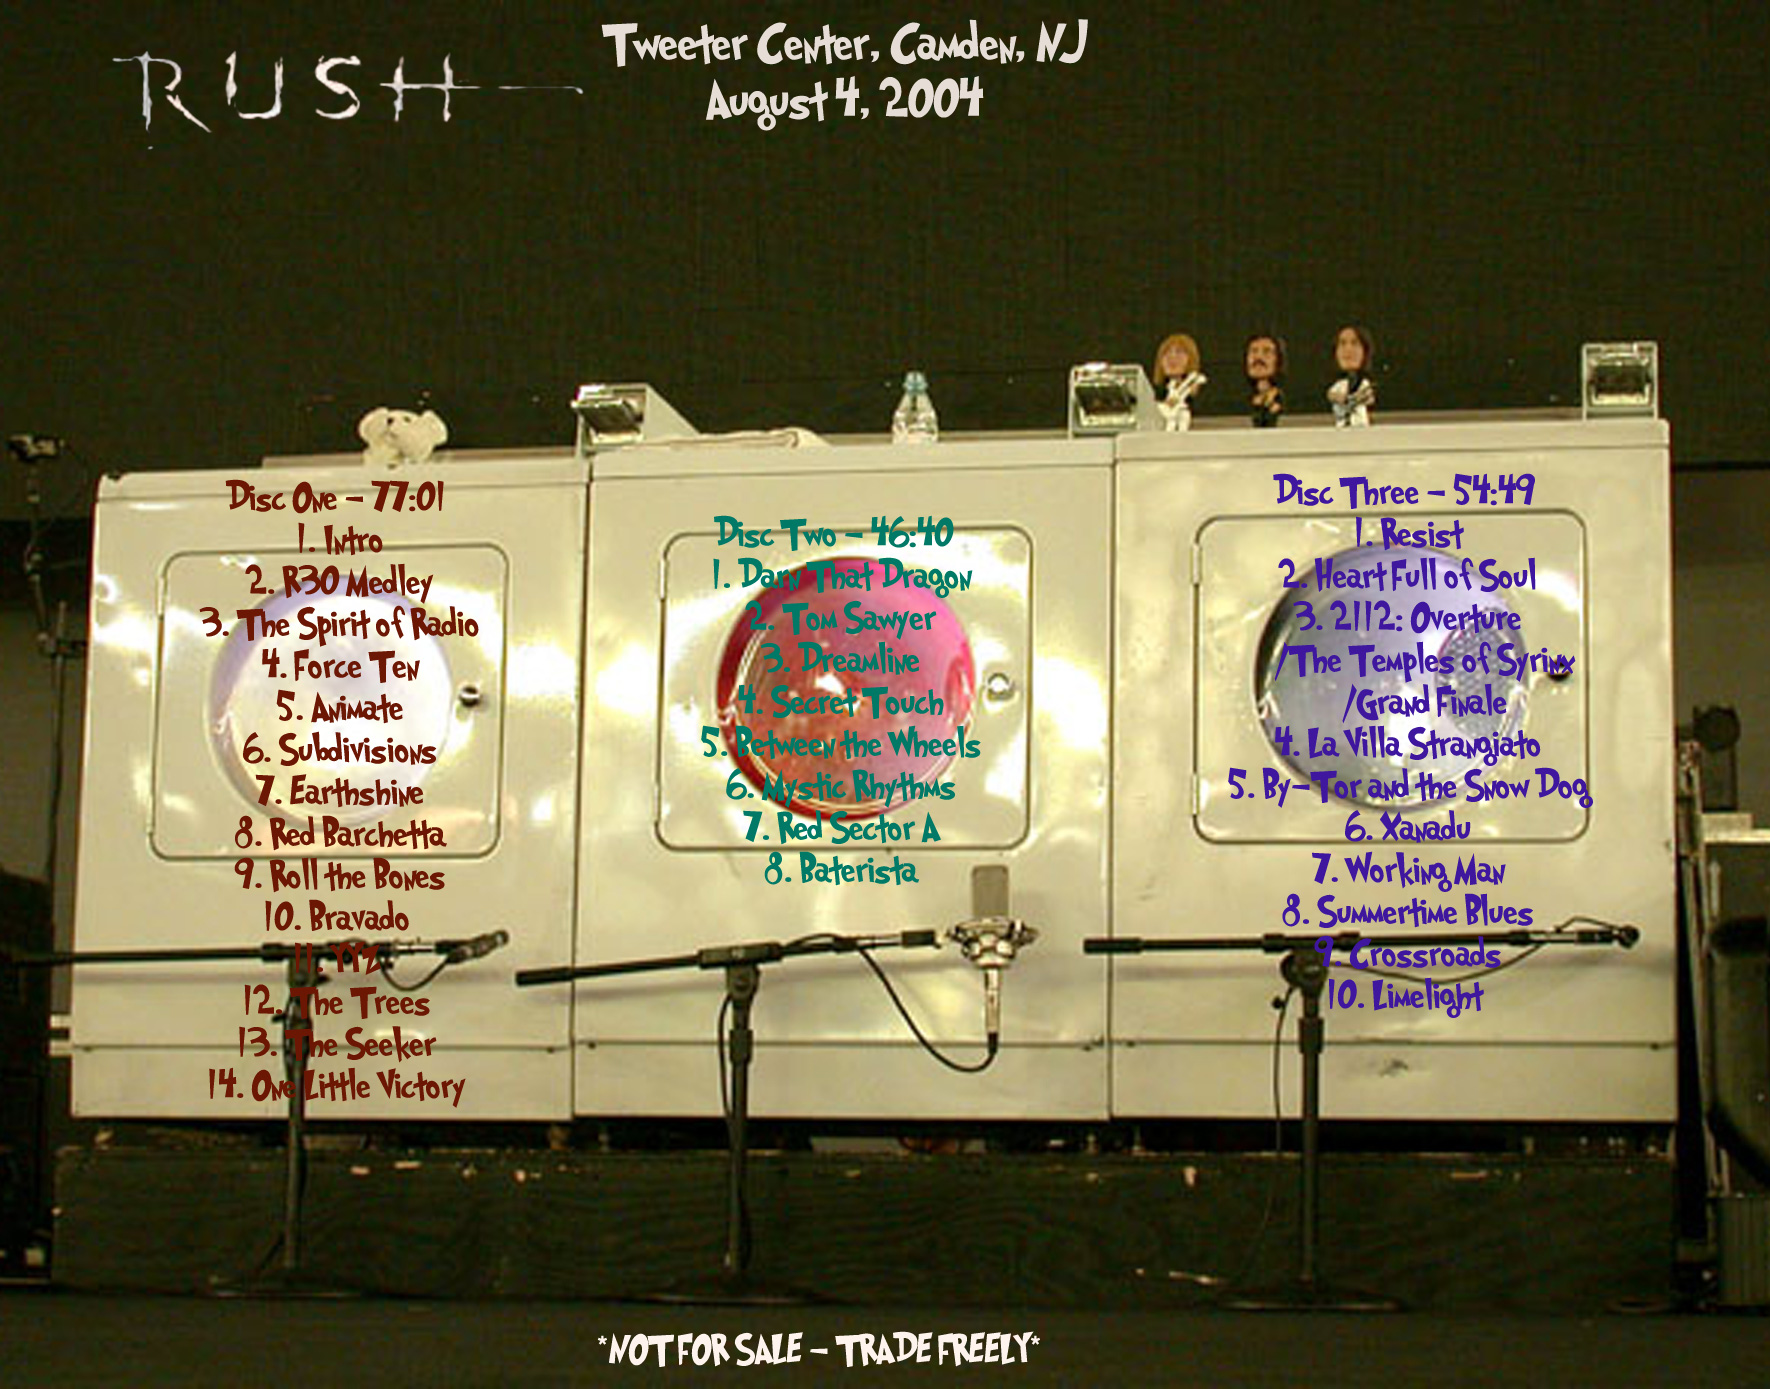 RUSH
Tweeter Center, Camden, NJ
August 4, 2004
Disc One - 77:01
1. Intro
2. R30 Medley
3. The Spirit of Radio
4. Force Ten
5. Animate
6. Subdivisions
7. Earthshine
8. Red Barchetta
9. Roll the Bones
10. Bravado
11. YYZ
12. The Trees
13. The Seeker
14. One Little Victory
Disc Two - 46:40
1. Darn That Dragon
2. Tom Sawyer
3. Dreamline
4. Secret Touch
5. Between the Wheels
6. Mystic Rhythms
7. Red Sector A
8. Baterista
Disc Three - 54:49
1. Resist
2. Heart Full of Soul
3. 2112: Overture
/The Temples of Syrinx
/Grand Finale
4. La Villa Strangiato
5. By-Tor and the Snow Dog
6. Xanadu
7. Working Man
8. Summertime Blues
9. Crossroads
10. Limelight
*NOT FOR SALE - TRADE FREELY*